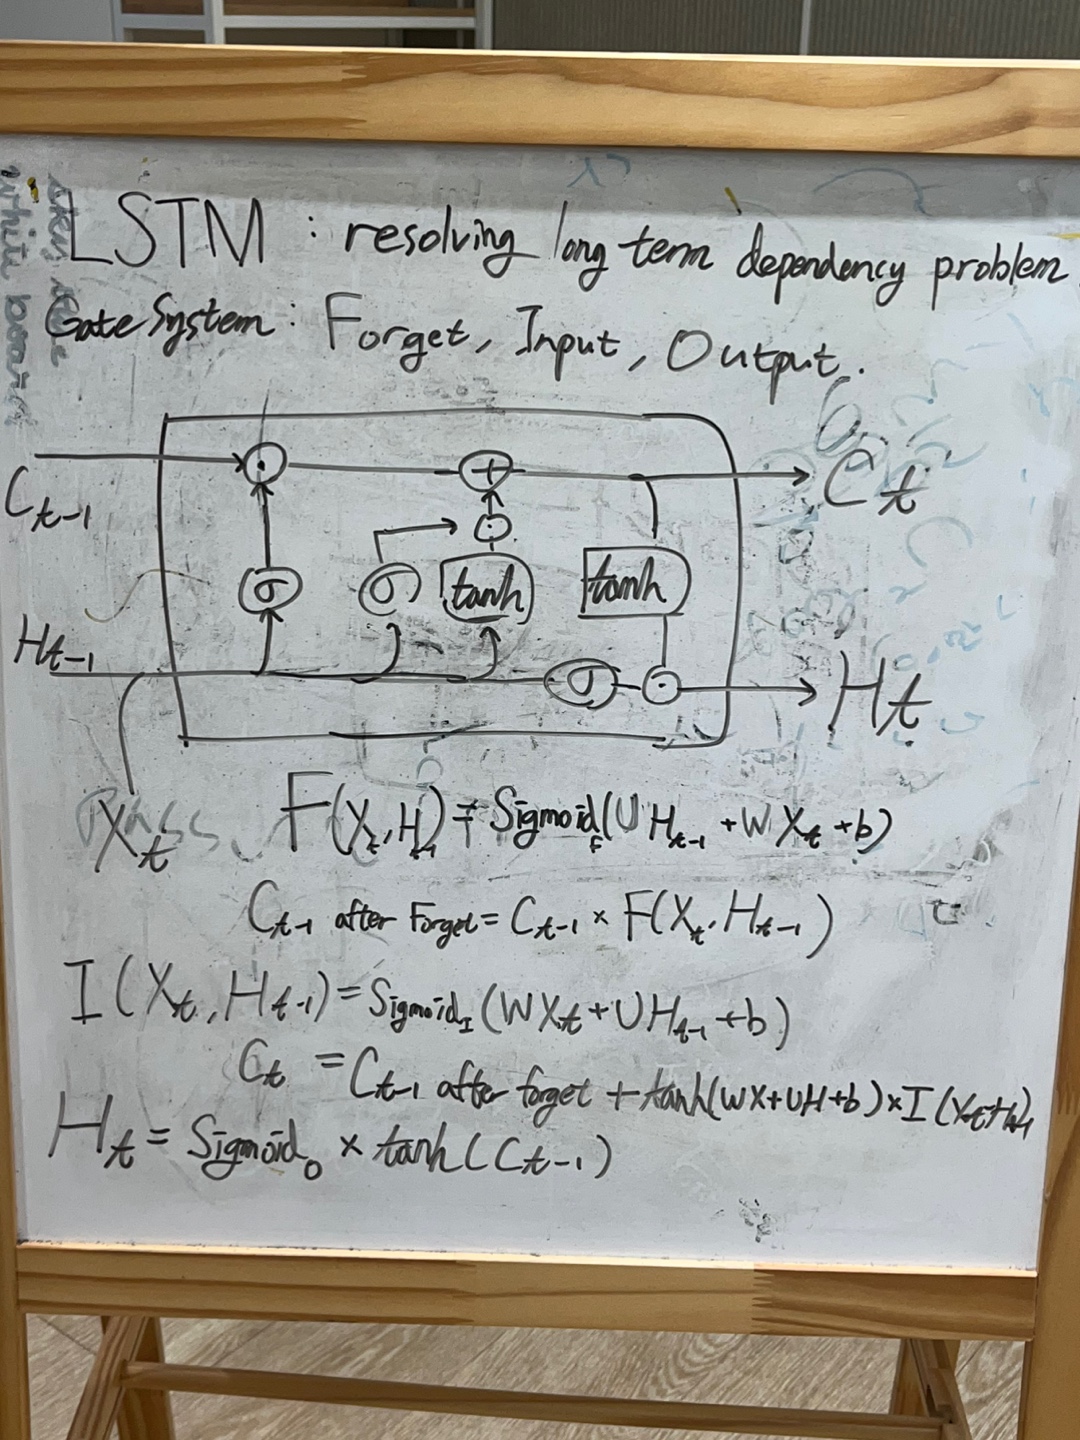 LSTM : resolving long term dependency problem
Gate System : Forget, Input, Output.
C_{t-1}
C_t
σ
σ
tanh
tanh
H_{t-1}
σ
H_t
X_t
F(X_t, H_{t-1}) = Sigmoid_F(U H_{t-1} + W X_t + b)
C_{t-1} after Forget = C_{t-1} × F(X_t, H_{t-1})
I(X_t, H_{t-1}) = Sigmoid_I (W X_t + U H_{t-1} + b)
C_t = C_{t-1} after forget + tanh(WX+UH+b) × I(X_t+H_{t-1})
H_t = Sigmoid_o × tanh(C_{t-1})
white board